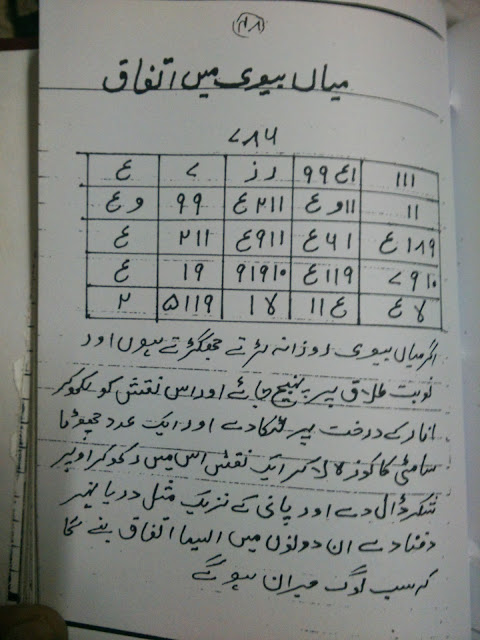 میاں بیوی میں اتفاق
۷۸۶
۱۱۱ ۱ع۹۹ رز ۷ ع
۱۱ ۱۱وع ۲۱۱ع ۹۹ وع
۱۸۹ع ۶۱ع ۹۱۱ع ۲۱۱ ع
۷۹۱۰ ۱۱۹ع ۹۱۹۱۰ ۱۹ ع
لاع ع۱۱ لا۱ ۵۱۱۹ ۲
اگر میاں بیوی روزانہ لڑتے جھگڑتے ہوں اور
نوبت طلاق پر پہنچ جائے اور اس نقش کو لکھ کر
انار کے درخت پر لٹکا دے اور ایک عدد چھوٹا
سا مٹی کا کوزہ لا کر ایک نقش اس میں رکھ کر اوپر
شکر ڈال دے اور پانی کے نزیک مثل دریا نہر
دفنا دے ان دونوں میں ایسا اتفاق بنے گا
کہ سب لوگ حیران ہو گے